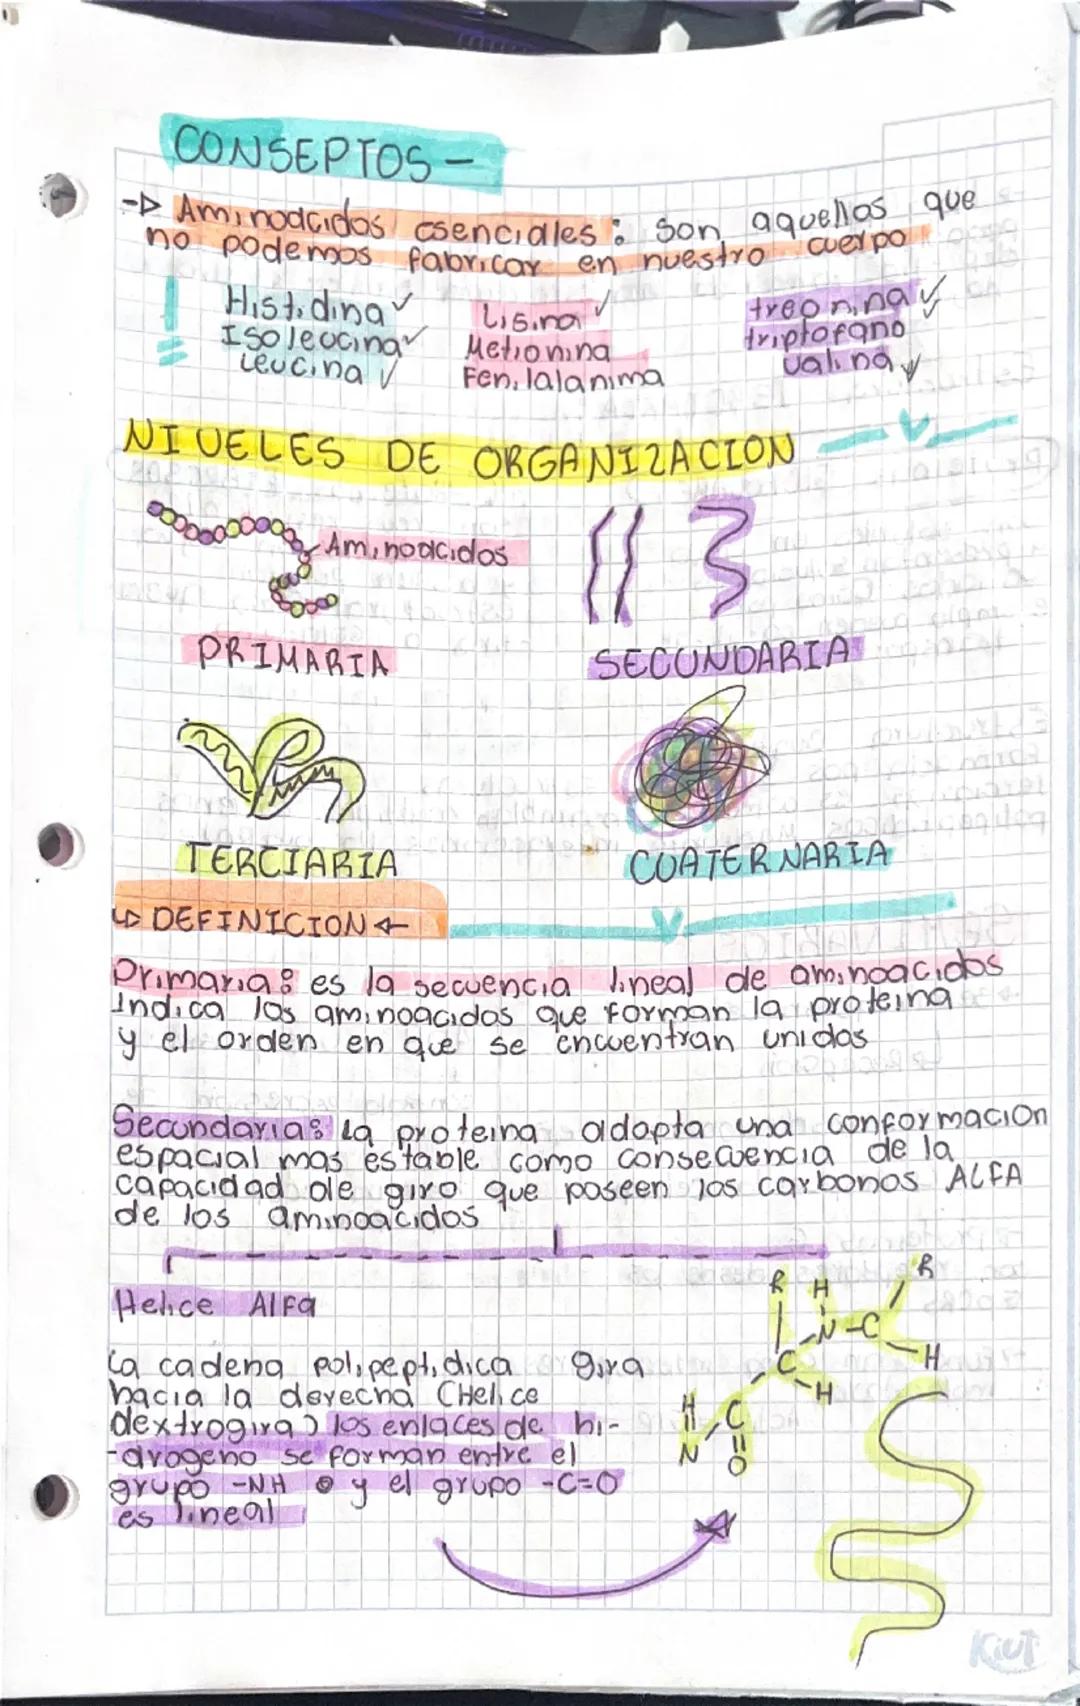 CONSEPTOS -
-> Aminoácidos esenciales: son aquellos que
no podemos fabricar en nuestro cuerpo
Histidina ✓ Lisina ✓ treonina ✓
Isoleucina ✓ Metionina triptofano
Leucina ✓ Fenilalanima valina ✓
NIVELES DE ORGANIZACION
Aminoacidos
PRIMARIA SECUNDARIA
TERCIARIA CUATERNARIA
↳ DEFINICION ←
Primaria: es la secuencia lineal de aminoacidos
Indica los aminoacidos que forman la proteina
y el orden en que se encuentran unidos
Secundaria: la proteina adopta una conformacion
espacial mas estable como consecuencia de la
capacidad de giro que poseen los carbonos ALFA
de los aminoacidos
Helice Alfa
La cadena polipeptidica gira
hacia la derecha (Helice
dextrogira) los enlaces de hi-
-drogeno se forman entre el
grupo -NH y el grupo -C=O
es lineal
R H R
N-C
C H
H
H C
N O
Kiut